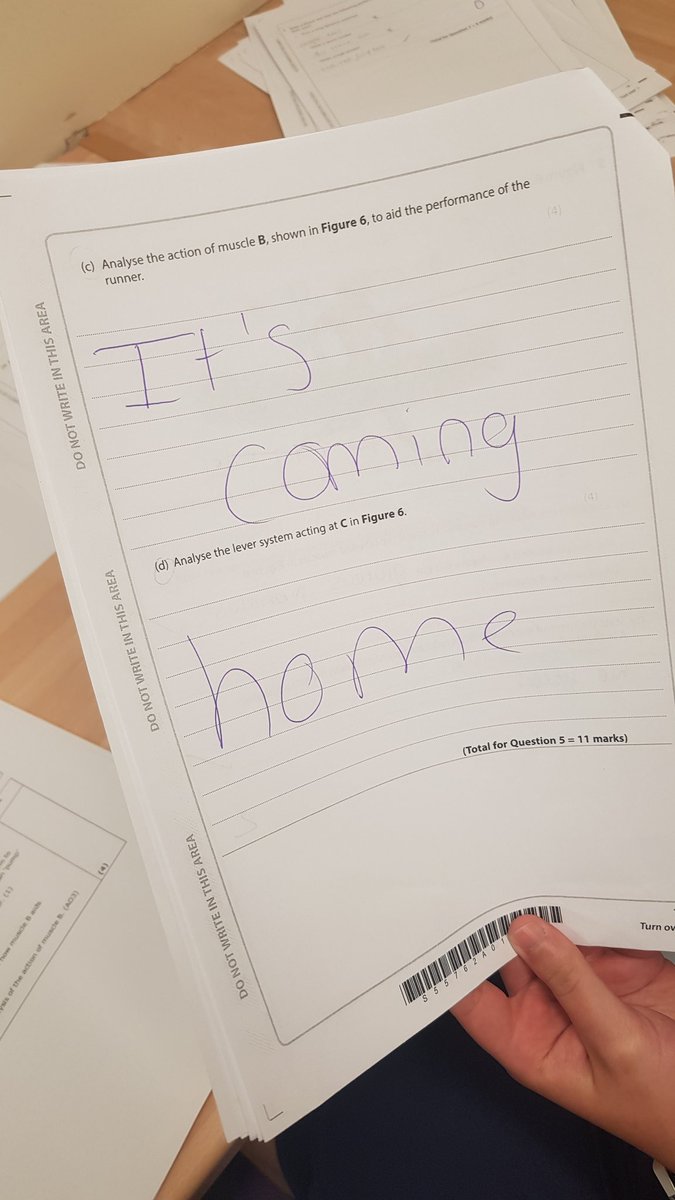 (c) Analyse the action of muscle B, shown in Figure 6, to aid the performance of the
runner.
(4)
It's
coming
(d) Analyse the lever system acting at C in Figure 6.
(4)
home
(Total for Question 5 = 11 marks)
DO NOT WRITE IN THIS AREA
DO NOT WRITE IN THIS AREA
DO NOT WRITE IN THIS AREA
Turn ov
(4)
(1)
how muscle B aids
ysis of the action of muscle B. (AO3)